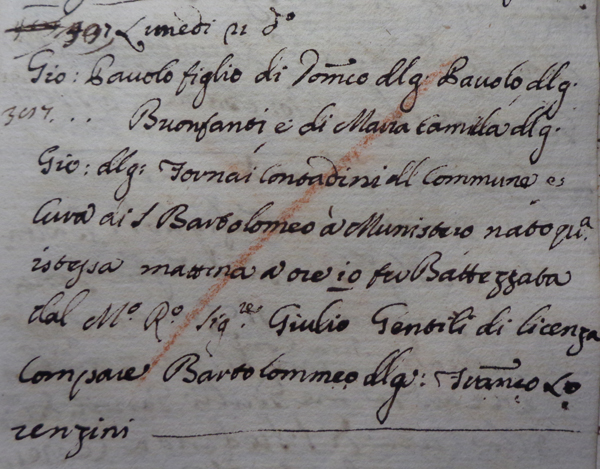 397 Lunedi 21 dº
Gio: Pavolo figlio di Dom̃co dlg: Pavolo dlg:
397... Buonfanti e di Maria Camilla dlg:
Gio: dlg: Fornai Contadini dl Commune e
Cura di S Bartolomeo à Munistero nato qtª
istessa mattina à ore 10 fu Battezzata
dal Mº Rº Sigre Giulio Gentili di licenza
Compare Bartolommeo dlg: Franco Lo
renzini